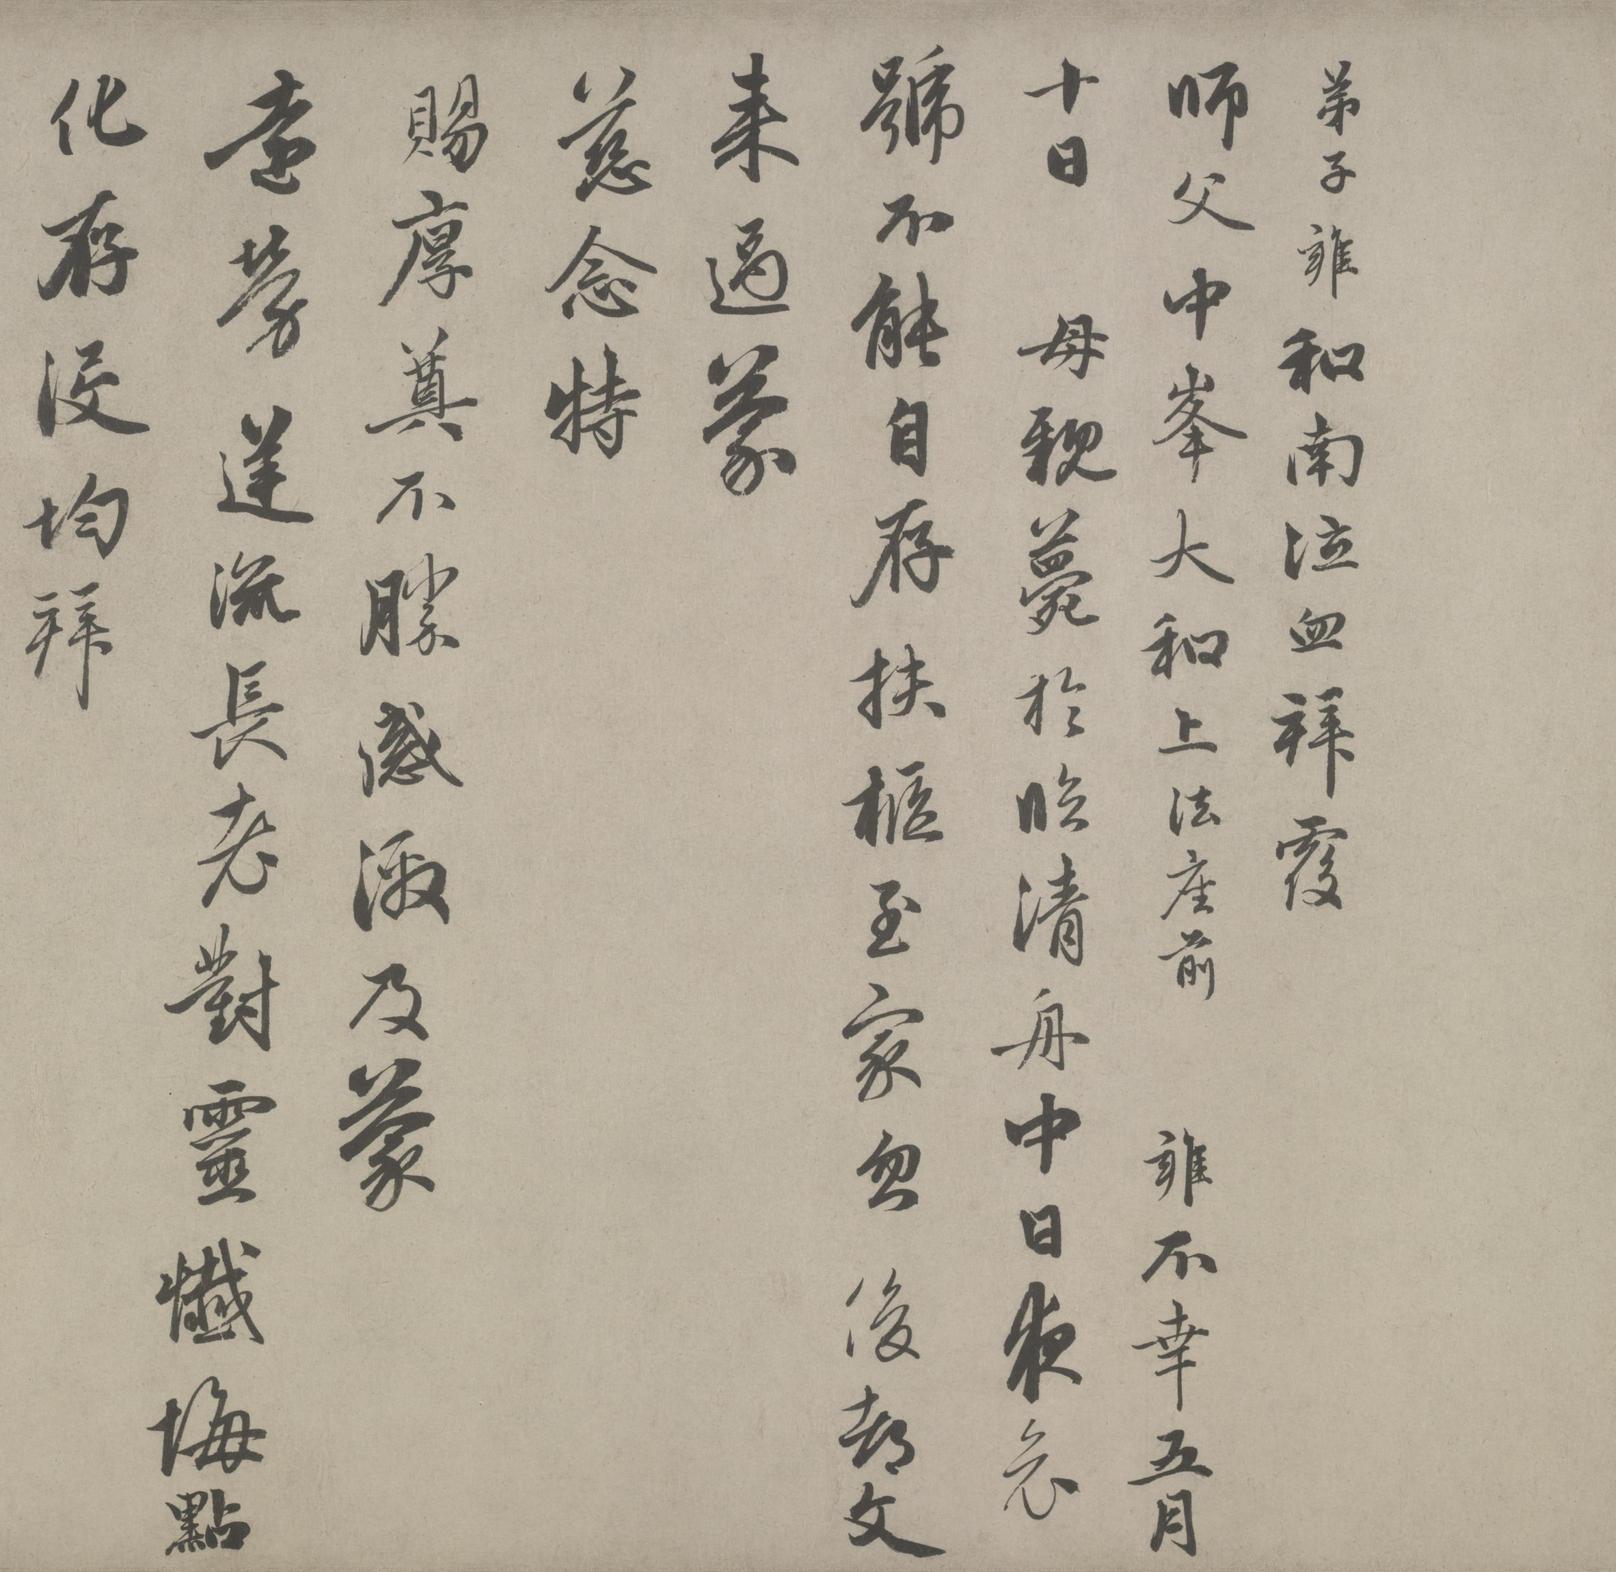 弟子雍和南泣血拜覆
師父中峯大和上法座前　雍不幸五月
十日　母親薨於臨清舟中日夜哀
號不能自存扶柩至家忽後都文
來過蒙
慈念特
賜厚奠不勝感激及蒙
遠勞達流長老對靈懺悔點
化存沒均拜